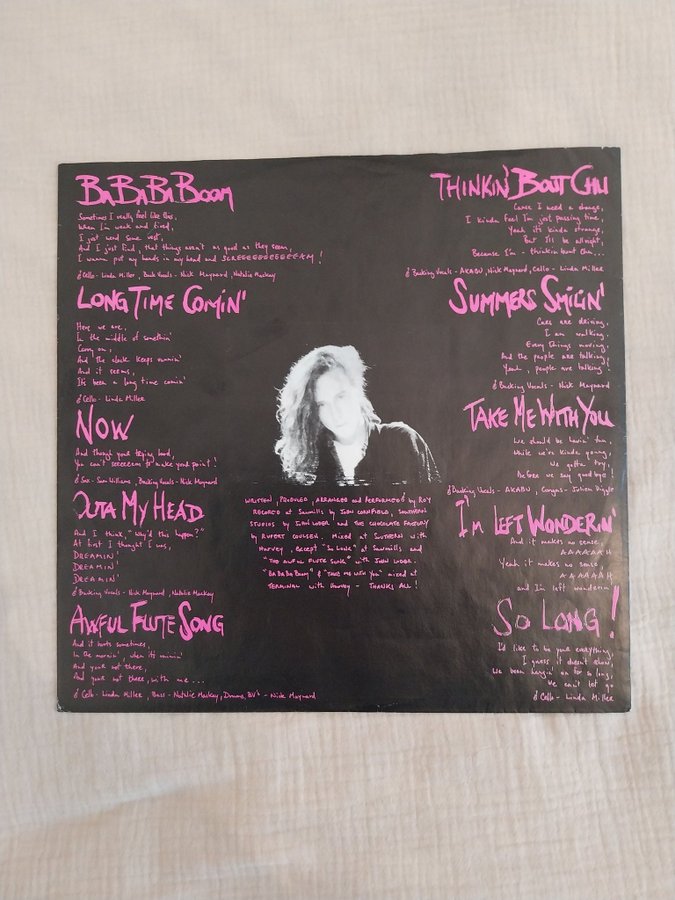 BaBaBaBoom
Sometimes I really feel like this,
When I'm weak and tired,
I just need some rest,
And I just find, that things aren't as good as they seem,
I wanna put my hands in my head and SCREEEEEEEEEEEEAM!
Cello - Linda Miller, Back Vocals - Nick Maynard, Natalie Mackey
LONG TIME COMIN'
Here we are,
In the middle of somethin'
Carry on,
And the clock keeps runnin'
And it seems,
It's been a long time comin'
Cello - Linda Miller
NOW
And though your trying hard,
You can't seeeeeem to make your point!
Sax - Sam Williams, Backing Vocals - Nick Maynard
OUTA MY HEAD
And I think, "Why'd this happen?"
At first I thought I was,
DREAMIN'
DREAMIN'
DREAMIN'
Backing Vocals - Nick Maynard, Natalie Mackey
AWFUL FLUTE SONG
And it hurts sometimes,
In the mornin', when its rainin'
And your not there,
And your not there, with me...
Cello - Linda Miller, Bass - Natalie Mackey, Drums, BV's - Nick Maynard
WRITTEN, PRODUCED, ARRANGED and PERFORMED by ROY
RECORDED at Sawmills by JOHN CORNFIELD, SOUTHERN
STUDIOS by JOHN LODER and THE CHOCOLATE FACTORY
by RUPERT COULSEN. MIXED at SOUTHERN with
HARVEY, EXCEPT "SO LONG" at SAWMILLS and
"THE AWFUL FLUTE SONG" with JOHN LODER.
"BA BA BA BOOM" & "TAKE ME WITH YOU" mixed at
TERMINAL with HARVEY - THANKS ALL!
THINKIN' BOUT CHU
Cause I need a change,
I kinda feel I'm just passing time,
Yeah it's kinda strange,
But I'll be allright,
Because I'm - thinkin bout chu...
Backing Vocals - AKABU, Nick Maynard, Cello - Linda Miller
SUMMERS SMILIN'
Cars are driving,
I am walking.
Every things moving,
And the people are talking,
Yeah, people are talking!
Backing Vocals - Nick Maynard
TAKE ME WITH YOU
We should be havin' fun,
While we're kinda young,
We gotta try,
Before we say goodbye!
Backing Vocals - AKABU, Congas - Julien
I'M LEFT WONDERIN'
And it makes no sense,
AAAAAAH
Yeah it makes no sense,
AAAAAAH
and I'm left wonderin'
SO LONG!
I'd like to be your everything,
I guess it doesn't show,
We been hangin' on for so long,
We can't let go
Cello - Linda Miller